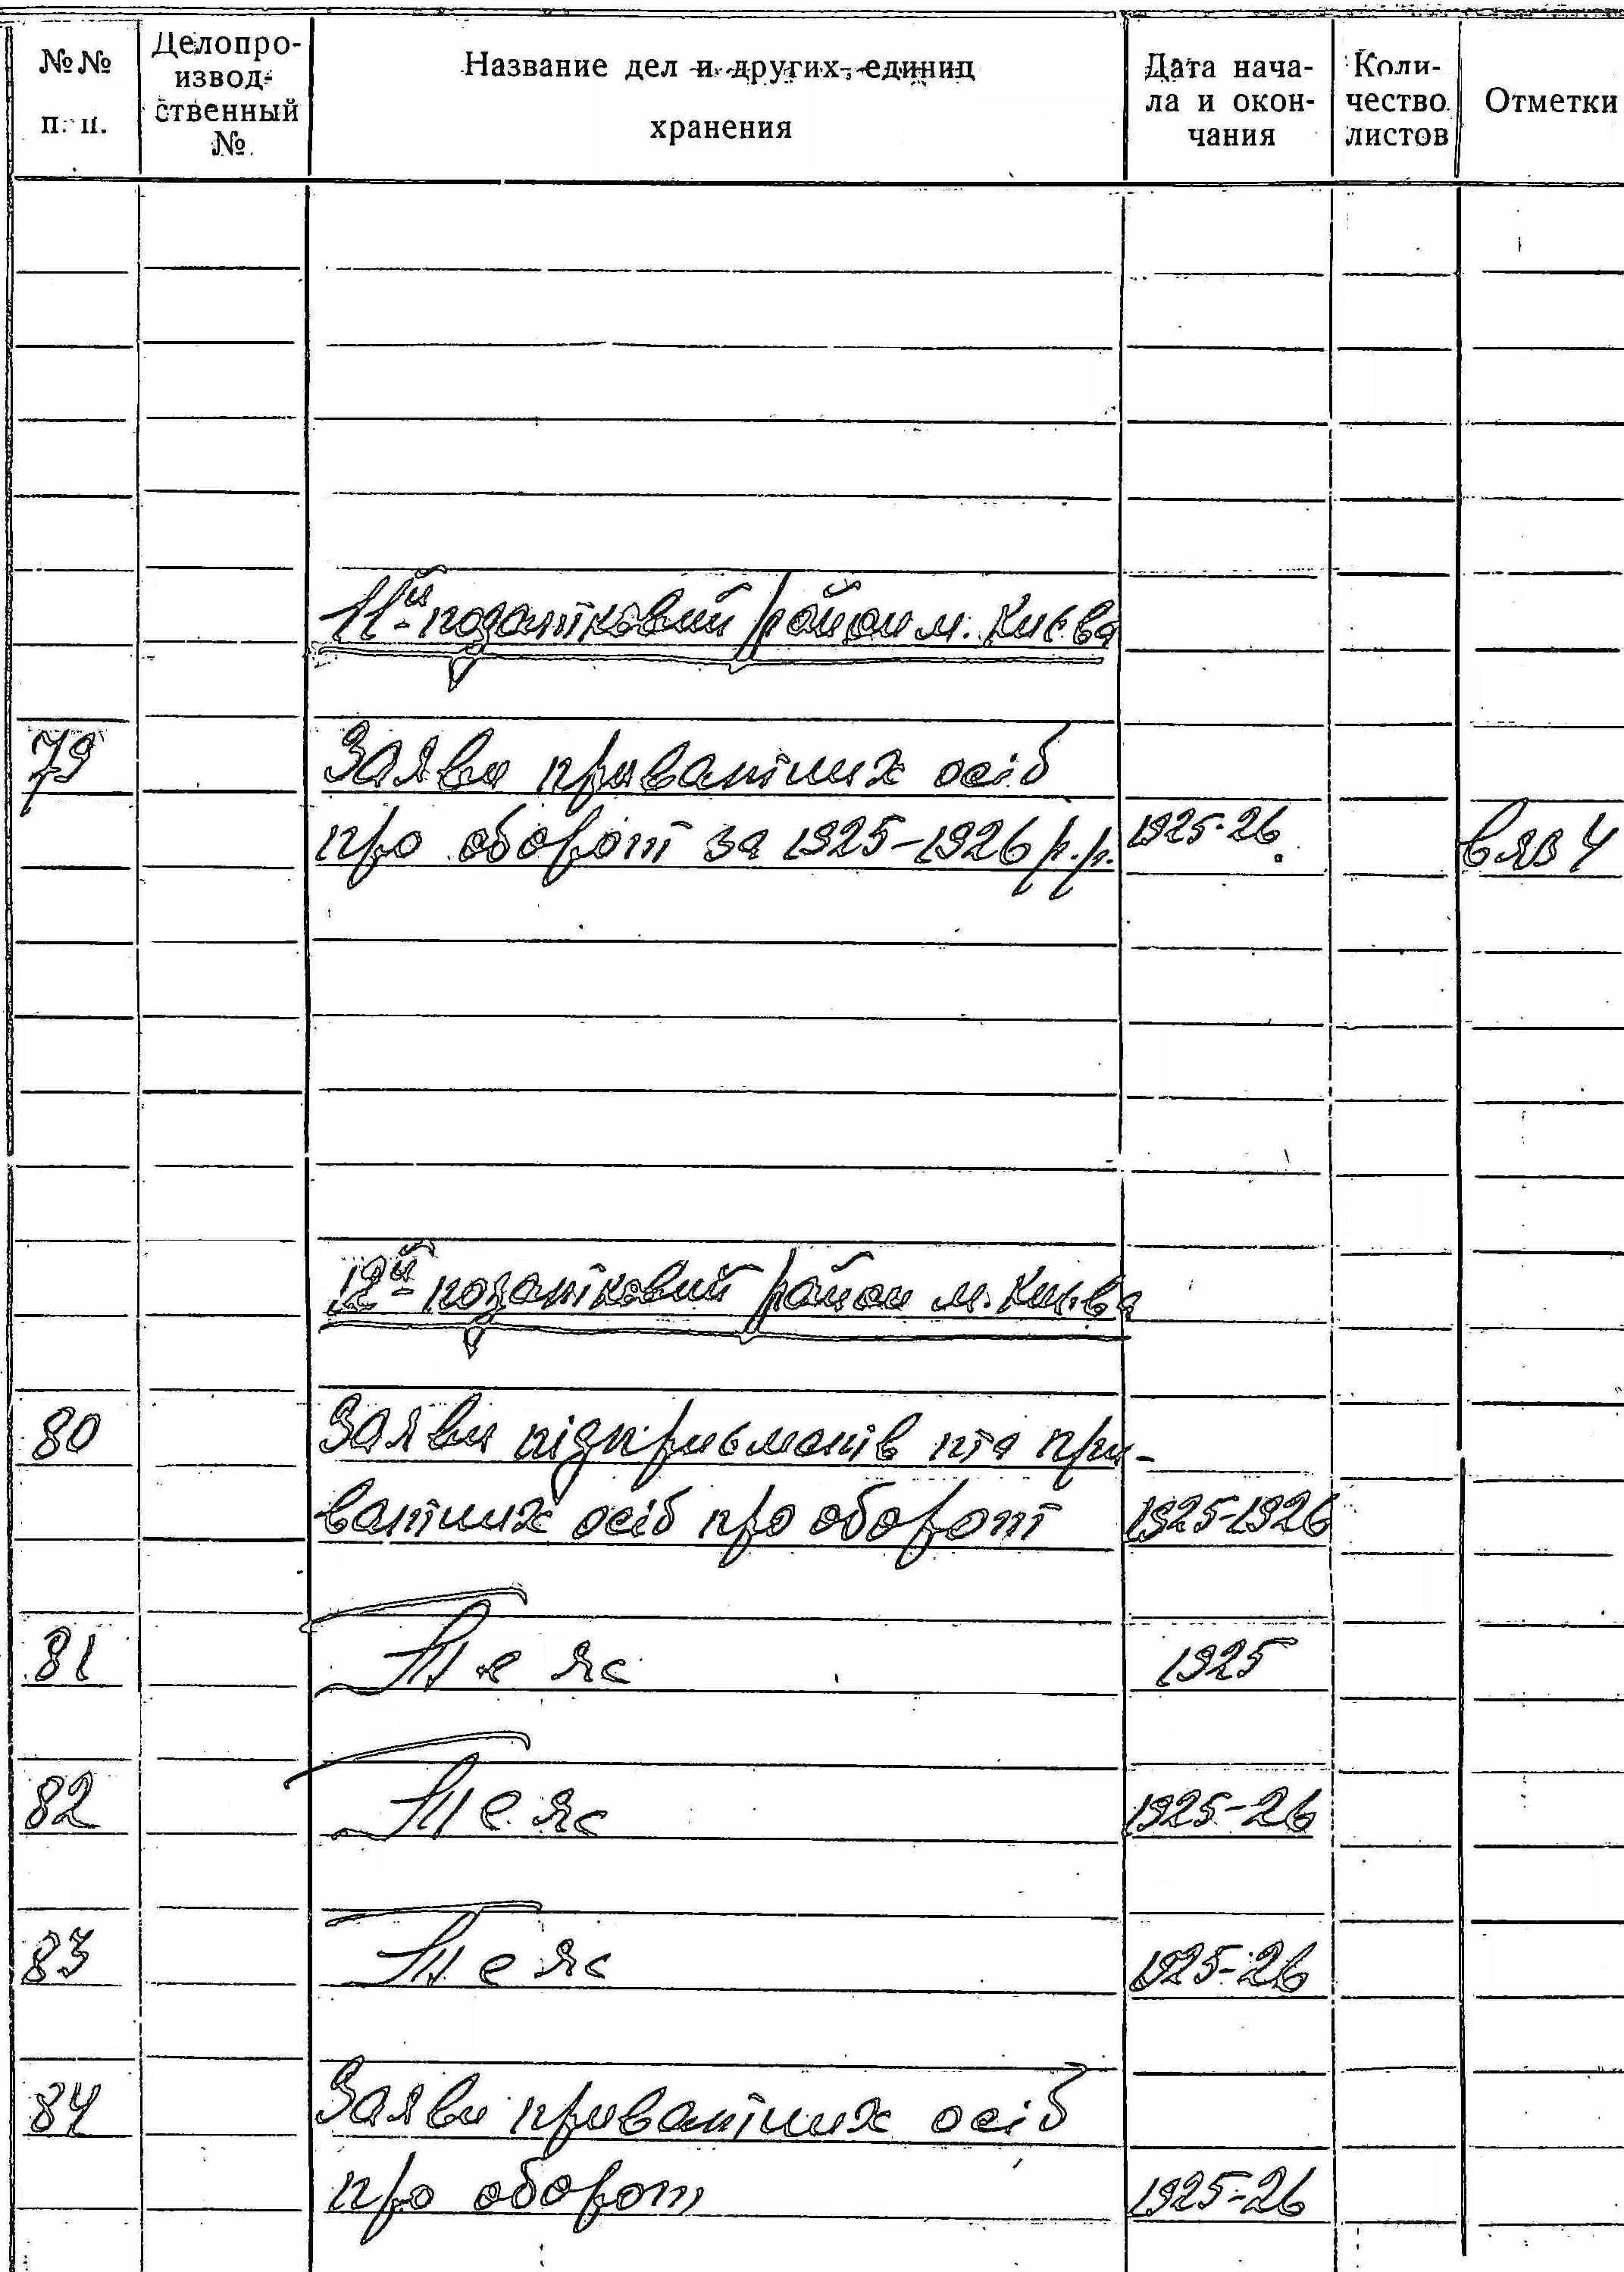 №№ п. п.
Делопро-
извод-
ственный
№
Название дел и других единиц
хранения
Дата нача-
ла и окон-
чания
Коли-
чество
листов
Отметки
11й податковий район м. Києва
79 Заяви приватних осіб
про оборот за 1925-1926 р.р. 1925-26. вяз 4
12й податковий район м. Києва
80 Заяви підприємств та при-
ватних осіб про оборот 1925-1926
81 Те ж 1925
82 Те ж 1925-26
83 Те ж 1925-26
84 Заяви приватних осіб
про оборот 1925-26